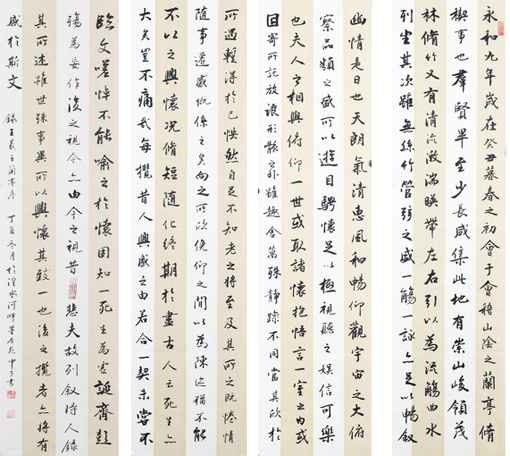 永和九年歲在癸丑暮春之初會于會稽山陰之蘭亭脩
禊事也羣賢畢至少長咸集此地有崇山峻領茂
林脩竹又有清流激湍暎帶左右引以為流觴曲水
列坐其次雖無絲竹管弦之盛一觴一詠亦足以暢敘
幽情是日也天朗氣清惠風和暢仰觀宇宙之大俯
察品類之盛所以遊目騁懷足以極視聽之娛信可樂
也夫人之相與俯仰一世或取諸懷抱悟言一室之內或
因寄所託放浪形骸之外雖趣舍萬殊靜躁不同當其欣於
所遇暫得於己怏然自足不知老之將至及其所之既惓情
隨事遷感慨係之矣向之所欣俛仰之間以為陳迹猶不能
不以之興懷況脩短隨化終期於盡古人云死生亦
大矣豈不痛哉每攬昔人興感之由若合一契未嘗不
臨文嗟悼不能喻之於懷固知一死生為虛誕齊彭
殤為妄作後之視今亦由今之視昔悲夫故列敘時人錄
其所述雖世殊事異所以興懷其致一也後之攬者亦將有
感於斯文 錄王羲之蘭亭序 丁酉冬月於湟水河畔 書